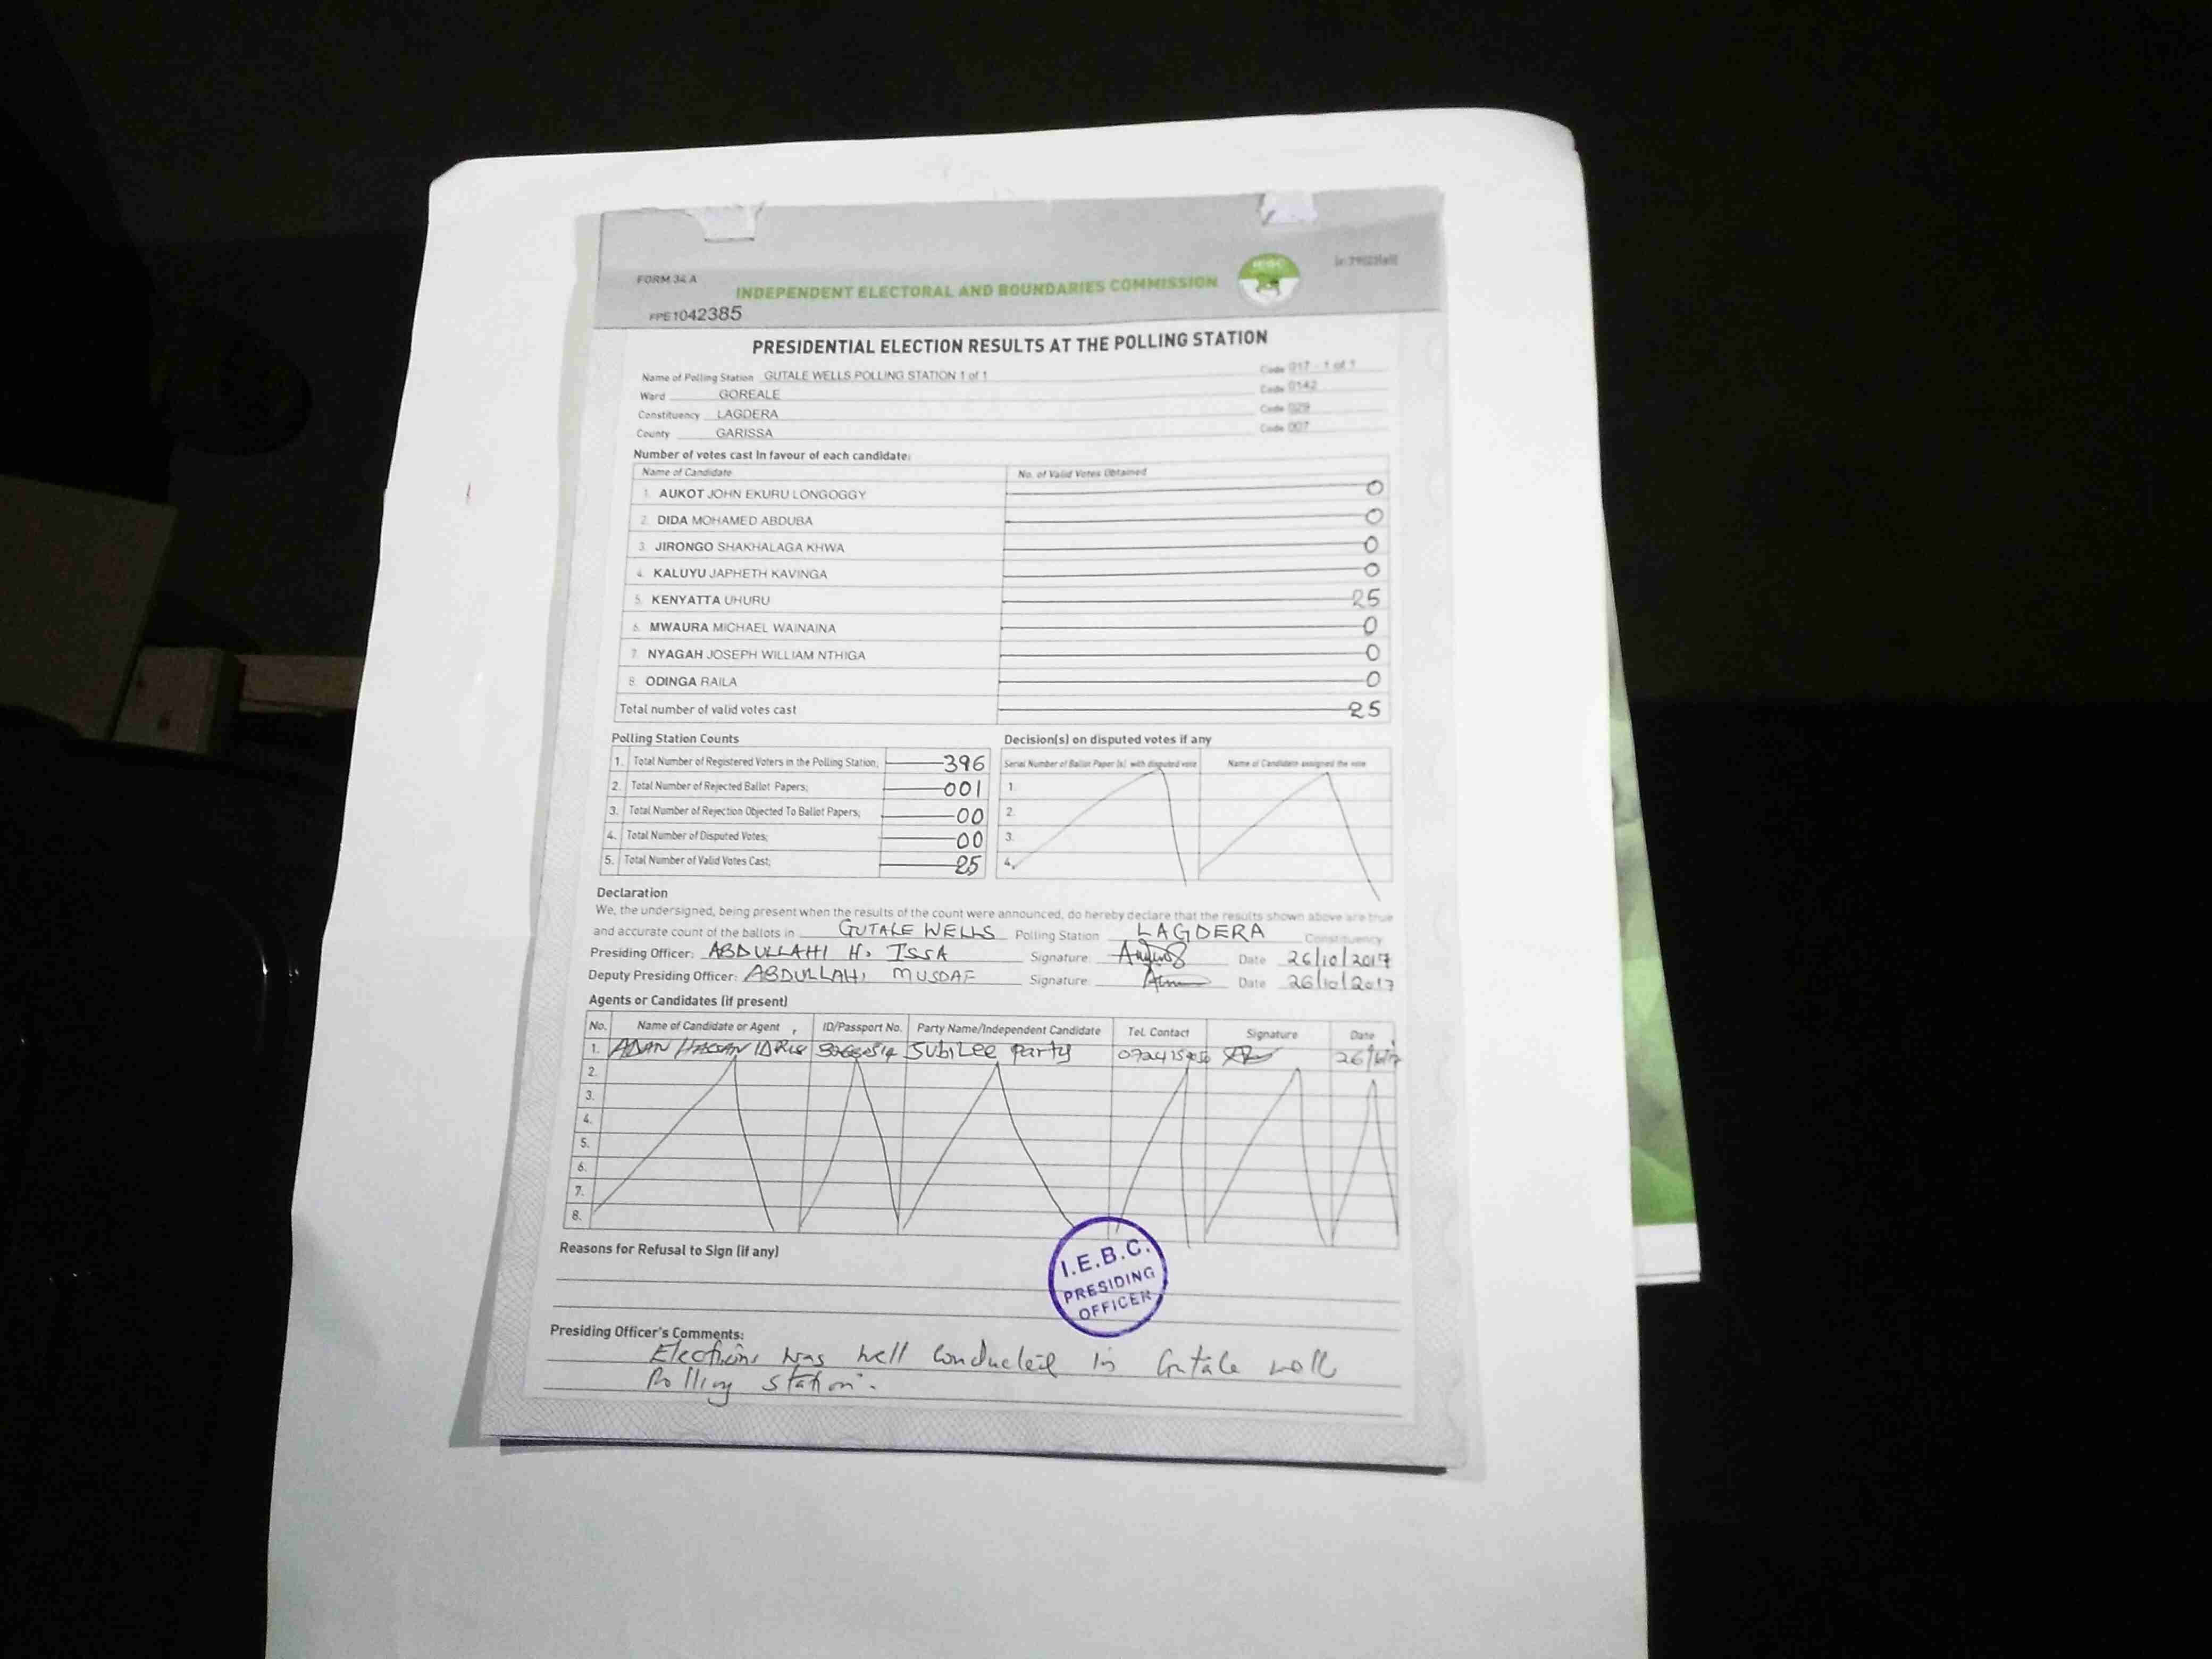 FORM 34 A
INDEPENDENT ELECTORAL AND BOUNDARIES COMMISSION
IEBC
FPE1042385
PRESIDENTIAL ELECTION RESULTS AT THE POLLING STATION
Name of Polling Station GUTALE WELLS POLLING STATION 1 of 1 Code 017 - 1 of 1
Ward GOREALE Code 0142
Constituency LAGDERA Code 029
County GARISSA Code 007
Number of votes cast in favour of each candidate:
Name of Candidate No. of Valid Votes Obtained
1. AUKOT JOHN EKURU LONGOGGY 0
2. DIDA MOHAMED ABDUBA 0
3. JIRONGO SHAKHALAGA KHWA 0
4. KALUYU JAPHETH KAVINGA 0
5. KENYATTA UHURU 25
6. MWAURA MICHAEL WAINAINA 0
7. NYAGAH JOSEPH WILLIAM NTHIGA 0
8. ODINGA RAILA 0
Total number of valid votes cast 25
Polling Station Counts
1. Total Number of Registered Voters in the Polling Station; 396
2. Total Number of Rejected Ballot Papers; 001
3. Total Number of Rejection Objected To Ballot Papers; 00
4. Total Number of Disputed Votes; 00
5. Total Number of Valid Votes Cast; 25
Decision(s) on disputed votes if any
Serial Number of Ballot Paper (s) with disputed vote Name of Candidate assigned the vote
1.
2.
3.
4.
Declaration
We, the undersigned, being present when the results of the count were announced, do hereby declare that the results shown above are true
and accurate count of the ballots in GUTALE WELLS Polling Station LAGDERA Constituency
Presiding Officer: ABDULLAHI H. ISSA Signature Date 26/10/2017
Deputy Presiding Officer: ABDULLAHI MUSDAF Signature Date 26/10/2017
Agents or Candidates (if present)
No. Name of Candidate or Agent ID/Passport No. Party Name/Independent Candidate Tel. Contact Signature Date
1. ADAN HASSAN IDRIS Jubilee party
2.
3.
4.
5.
6.
7.
8.
Reasons for Refusal to Sign (if any)
I.E.B.C.
PRESIDING
OFFICER
Presiding Officer's Comments:
Elections was well conducted in Gutale well
Polling station.